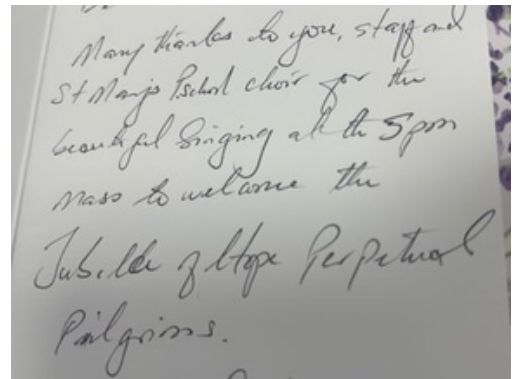 Many thanks to you, staff and
St Mary's Pschool choir for the
beautiful Singing at the 5pm
Mass to welcome the
Jubilee of Hope Perpetual
Pilgrims.